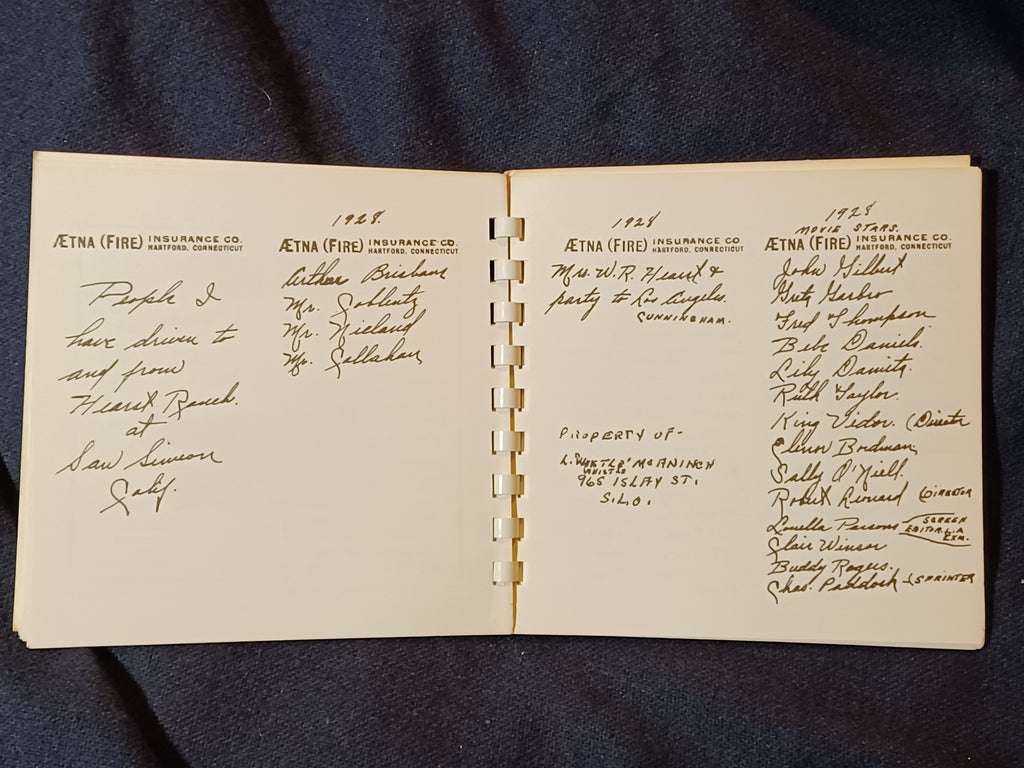 ÆTNA (FIRE) INSURANCE CO.
HARTFORD, CONNECTICUT
People I
have driven to
and from
Hearst Ranch.
at
San Simeon
Calif.
1928.
ÆTNA (FIRE) INSURANCE CO.
HARTFORD, CONNECTICUT
Arthur Brisbane
Mr. Coblentz
Mr. Nieland
Mr. Callahan
1928
ÆTNA (FIRE) INSURANCE CO.
HARTFORD, CONNECTICUT
Mrs. W.R. Hearst &
party to Los Angeles.
CUNNINGHAM.
PROPERTY OF-
L. McANINCH
WHISTLE
965 ISLAY ST.
S.L.O.
1928
MOVIE STARS.
ÆTNA (FIRE) INSURANCE CO.
HARTFORD, CONNECTICUT
John Gilbert
Greta Garbo
Fred Thompson
Bebe Daniels.
Lily Damita.
Ruth Taylor.
King Vidor. (Director
Elenor Bordman.
Sally O'Niell.
Robert Leonard (DIRECTOR
Louella Parsons - SCREEN
EDITOR. L.A
EXM.
Clair Winsor
Buddy Rogers.
Chas. Paddock - (SPRINTER